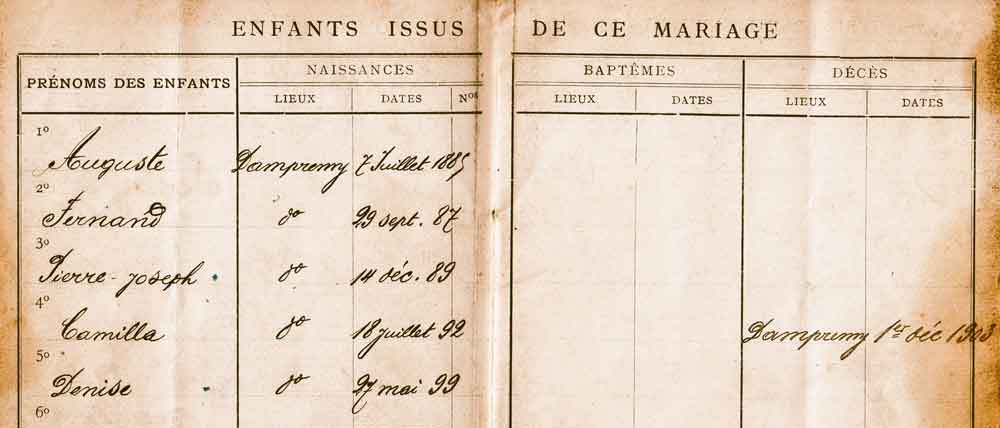 ENFANTS ISSUS DE CE MARIAGE
PRÉNOMS DES ENFANTS NAISSANCES BAPTÊMES DÉCÈS
LIEUX DATES Nos LIEUX DATES LIEUX DATES
1o
Auguste Dampremy 7 Juillet 1885
2o
Fernand do 29 sept. 87
3o
Pierre-Joseph do 14 déc. 89
4o
Camilla do 18 juillet 92 Dampremy 1er déc 1903
5o
Denise do 27 mai 99
6o